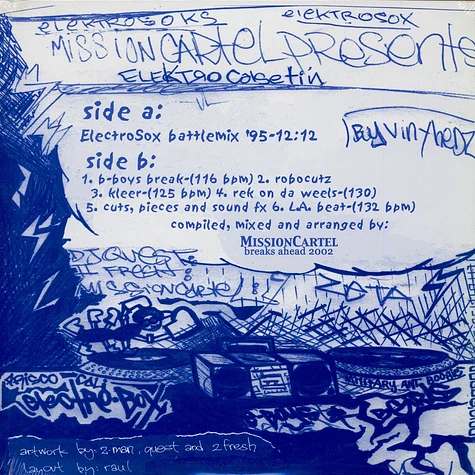 elektrosoks
elektrosox
MissionCartel presents
Elektro Casetin
side a:
ElectroSox battlemix '95-12:12
side b:
1. b-boys break-(116 bpm) 2. robocutz
3. kleer-(125 bpm) 4. rek on da weels-(130)
5. cuts, pieces and sound fx 6. L.A. beat-(132 bpm)
compiled, mixed and arranged by:
MISSIONCARTEL
breaks ahead 2002
DJ QUEST
2 FRESH
MISSIONCARTEL
electro-boy
artwork by: z-man, quest and 2fresh
layout by: raul